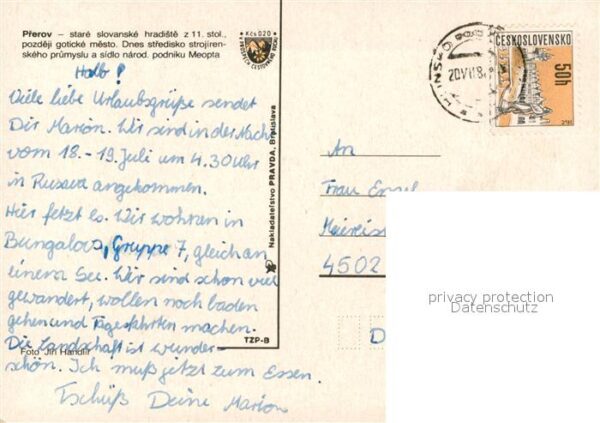 Přerov – staré slovanské hradiště z 11. stol.,
později gotické město. Dnes středisko strojíren-
ského průmyslu a sídlo národ. podniku Meopta
Kčs 0,20
Hallo!
Viele liebe Urlaubsgrüße sendet
Dir Marion. Wir sind in der Nacht
vom 18.-19. Juli um 4.30 Uhr
in angekommen.
Hier fetzt es. Wir wohnen in
Bungalows, Gruppe 7, gleich an
einem See. Wir sind schon viel
gewandert, wollen noch baden
gehen und Tagesfahrten machen.
Die Landschaft ist wunder-
schön. Ich muß jetzt zum Essen.
Tschüß Deine Marion
Foto Jiří Handlíř
TZP-B
Nakladatelství PRAVDA, Bratislava
ČESKOSLOVENSKO
50h
An
Frau
4502
D
privacy protection
Datenschutz